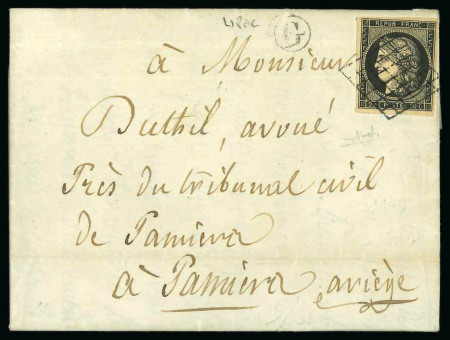 G
REPUB. FRANC.
à Monsieur
Duthil, avoué
Près du tribunal civil
de Pamiers
à Pamiers ariège